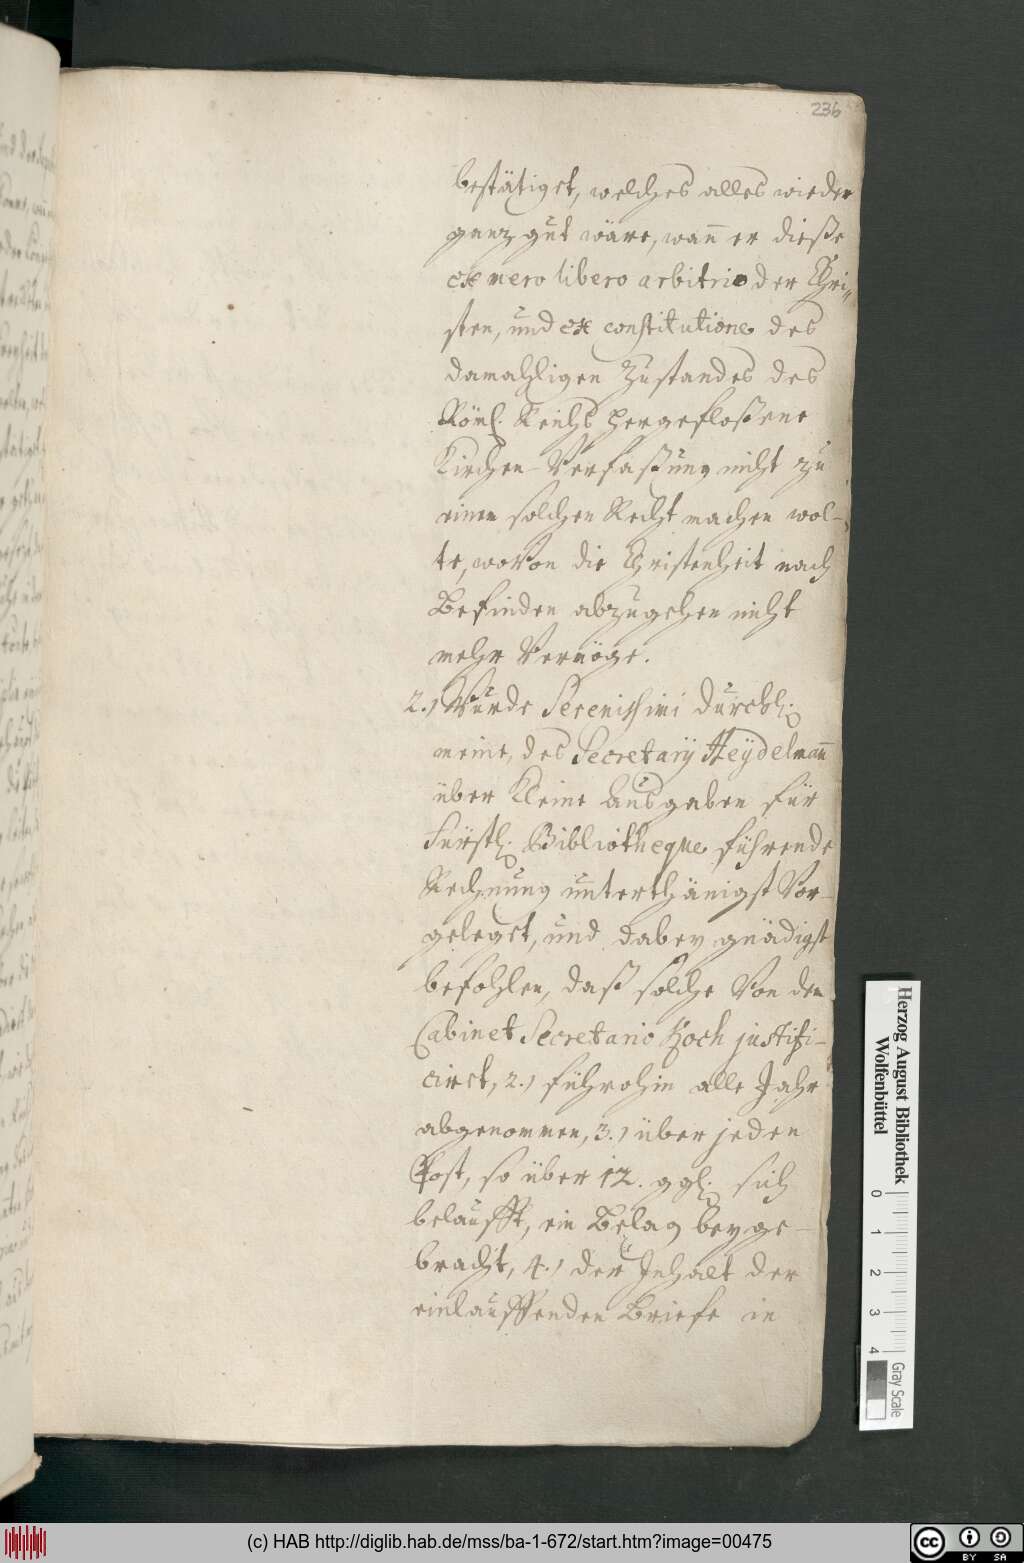 236
bestätiget, welches alles wieder
ganz gut wäre, wan̄ er dieße
ex mero libero arbitrio der Chri„
sten, und ex constitutione des
damahligen Zustandes des
Röml. Reichs hergefloßene
Kirchen-Verfaßung nicht zu
einen solchen Recht machen wol-
te, wovon die Christenheit nach
Befinden abzugehen nicht
mehr Vermöge.
2.) Wurde Serenissimi Durchl.
meine, des Secretarij Heydelman̄
über Kleine Ausgaben für
Fürstl. Bibliotheque führende
Rechnung unterthänigst Vor-
geleget, und dabey gnädigst
befohlen, daß solche Von dem
Cabinet Secretario Koch justifi-
ciret, 2.) führohin alle Jahr
abgenommen, 3.) über jeden
Post, so über 12. ggl. sich
belaufft, ein Belag beyge-
bracht, 4.) der Inhalt der
einlauffenden Briefe in
Herzog August Bibliothek
Wolfenbüttel
0 1 2 3 4
Gray Scale
(c) HAB http://diglib.hab.de/mss/ba-1-672/start.htm?image=00475
cc BY SA